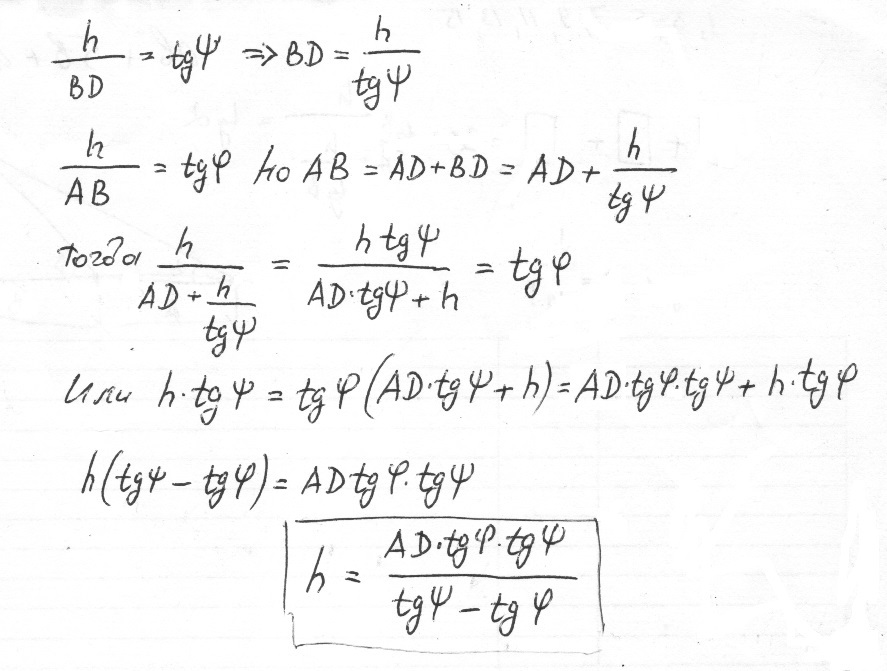 h/BD = tgψ ⇒ BD = h/tgψ
h/AB = tgφ но AB = AD + BD = AD + h/tgψ
тогда h/(AD + h/tgψ) = h tgψ/(AD·tgψ + h) = tgφ
или h·tgψ = tgφ(AD·tgψ + h) = AD·tgφ·tgψ + h·tgφ
h(tgψ − tgφ) = AD tgφ·tgψ
h = AD·tgφ·tgψ/(tgψ − tgφ)